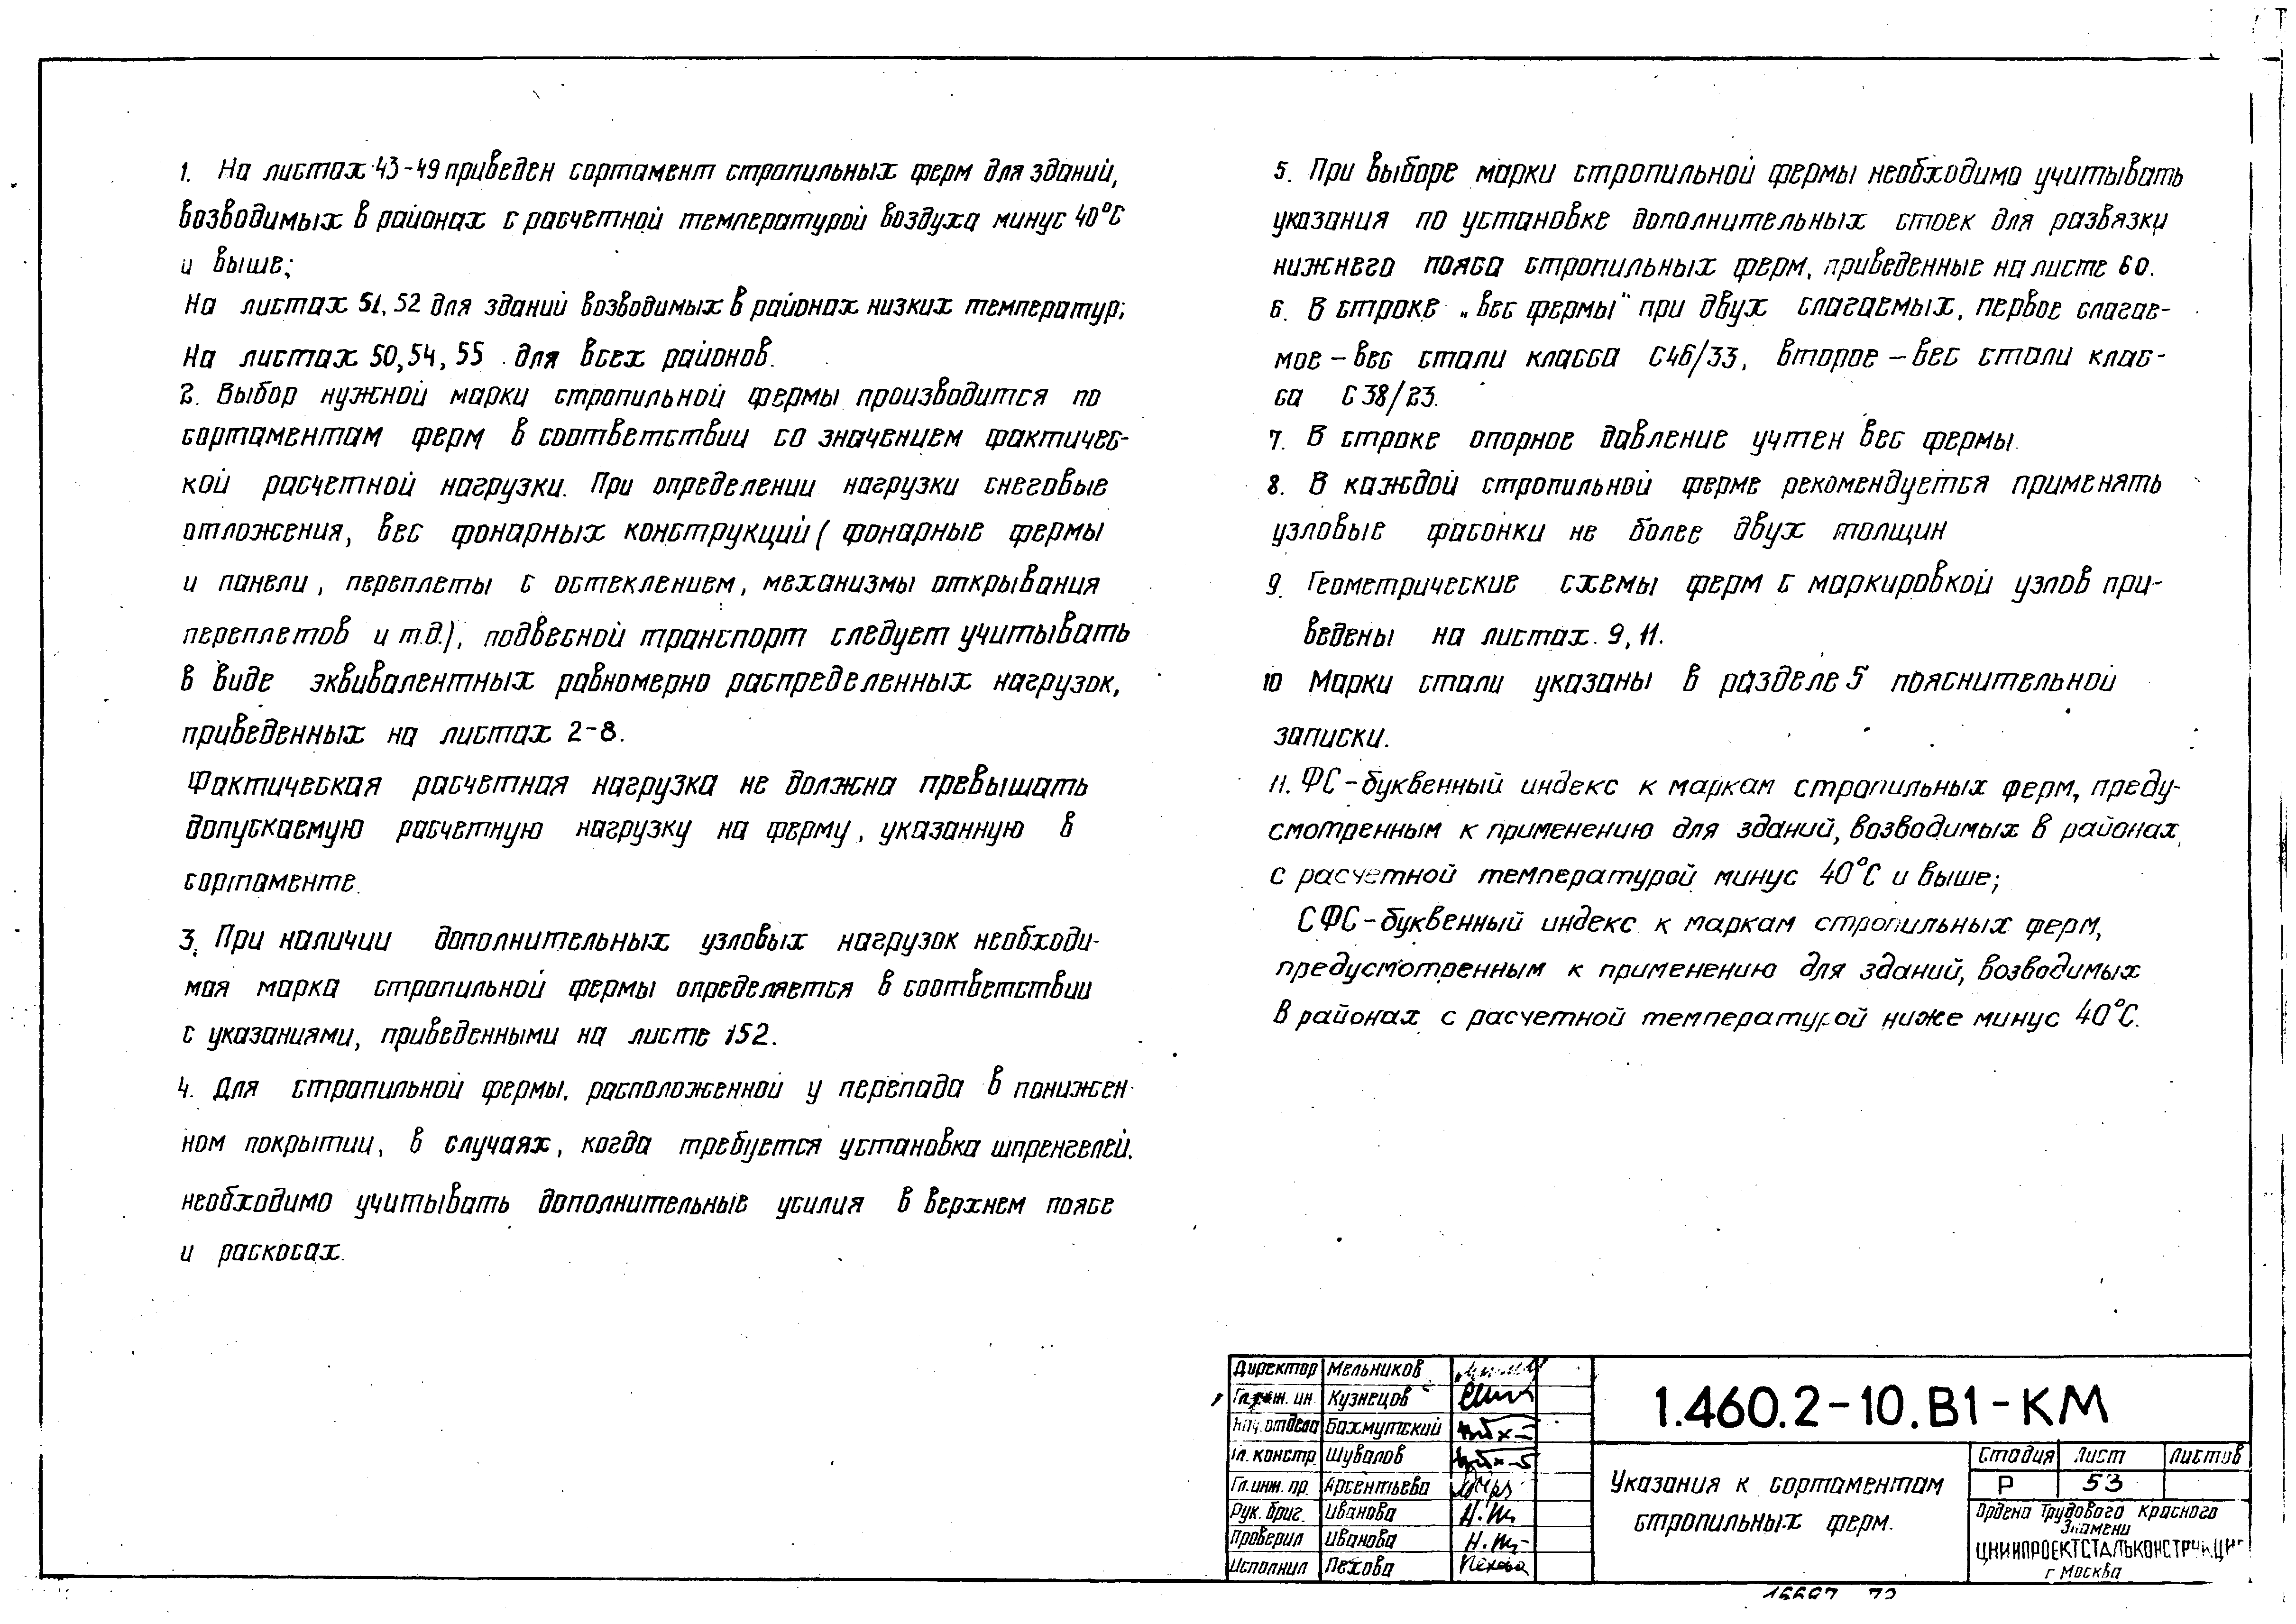 1. На листах 43-49 приведен сортамент стропильных ферм для зданий,
возводимых в районах с расчетной температурой воздуха минус 40°С
и выше;
На листах 51, 52 для зданий возводимых в районах низких температур;
На листах 50, 54, 55 для всех районов.
2. Выбор нужной марки стропильной фермы производится по
сортаментам ферм в соответствии со значением фактичес-
кой расчетной нагрузки. При определении нагрузки снеговые
отложения, вес фонарных конструкций ( фонарные фермы
и панели, переплеты с остеклением, механизмы открывания
переплетов и т.д.), подвесной транспорт следует учитывать
в виде эквивалентных равномерно распределенных нагрузок,
приведенных на листах 2-8.
Фактическая расчетная нагрузка не должна превышать
допускаемую расчетную нагрузку на ферму, указанную в
сортаменте.
3. При наличии дополнительных узловых нагрузок необходи-
мая марка стропильной фермы определяется в соответствии
с указаниями, приведенными на листе 152.
4. Для стропильной фермы, расположенной у перепада в понижен-
ном покрытии, в случаях, когда требуется установка шпренгелей,
необходимо учитывать дополнительные усилия в верхнем поясе
и раскосах.
5. При выборе марки стропильной фермы необходимо учитывать
указания по установке дополнительных стоек для развязки
нижнего пояса стропильных ферм, приведенные на листе 60.
6. В строке „вес фермы" при двух слагаемых, первое слагае-
мое - вес стали класса С46/33, второе - вес стали клас-
са С38/23.
7. В строке опорное давление учтен вес фермы.
8. В каждой стропильной ферме рекомендуется применять
узловые фасонки не более двух толщин
9. Геометрические схемы ферм с маркировкой узлов при-
ведены на листах. 9, 11.
10 Марки стали указаны в разделе 5 пояснительной
записки.
11. ФС - буквенный индекс к маркам стропильных ферм, преду-
смотренным к применению для зданий, возводимых в районах
с расчетной температурой минус 40°С и выше;
СФС - буквенный индекс к маркам стропильных ферм,
предусмотренным к применению для зданий, возводимых
в районах с расчетной температурой ниже минус 40°С.
Директор Мельников
Кузнецов
Нач. отдела Бахмутский
Гл. констр. Шувалов
Гл. инж. пр. Арсентьева
Рук. бриг. Иванова Н. Ив
Проверил Иванова Н. Ив
Исполнил Пехова Пехова
1.460.2-10.В1-КМ
Указания к сортаментам
стропильных ферм.
Стадия Лист Листов
Р 53
Ордена Трудового Красного
Знамени
ЦНИИПРОЕКТСТАЛЬКОНСТРУКЦИЯ
г Москва